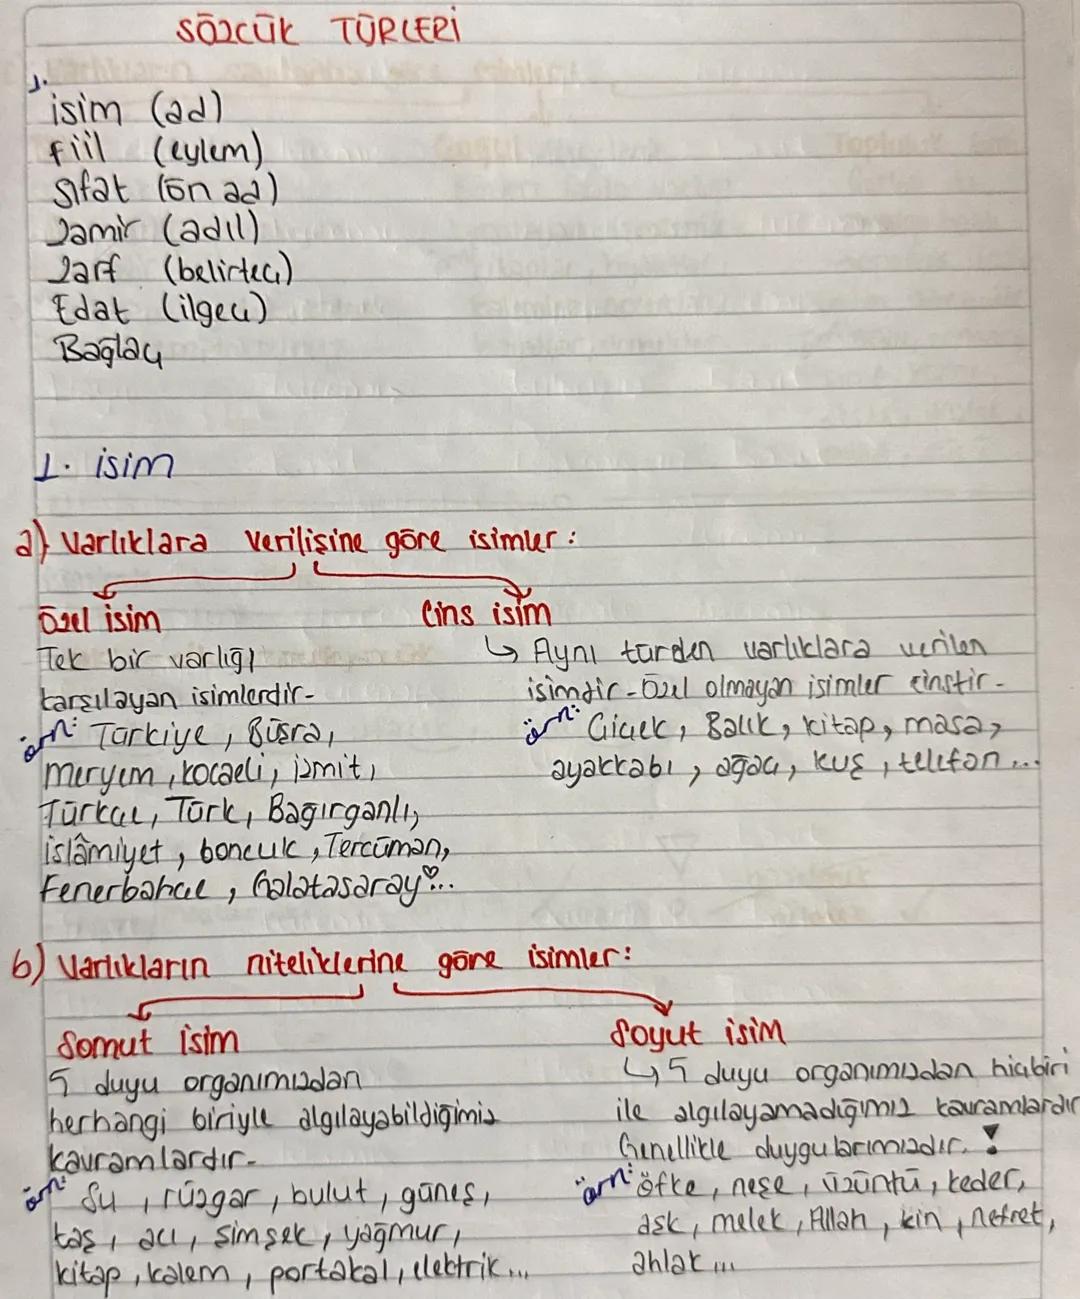 SÖZCÜK TÜRLERİ
1.
isim (ad)
fiil (eylem)
Sıfat (ön ad)
Zamir (adıl)
Zarf (belirteç)
Edat (ilgeç)
Bağlaç
1. isim
a) Varlıklara verilişine göre isimler:
Özel isim
Tek bir varlığı
karşılayan isimlerdir.
örn: Türkiye, Büşra,
Meryem, Kocaeli, İzmit,
Türkçe, Türk, Bağırganlı,
islâmiyet, boncuk, Tercüman,
Fenerbahçe, Galatasaray♡...
Cins isim
↳ Aynı türden varlıklara verilen
isimdir. Özel olmayan isimler cinstir.
örn: Çiçek, Balık, kitap, masa,
ayakkabı, ağaç, kuş, telefon...
b) Varlıkların niteliklerine göre isimler:
Somut isim
5 duyu organımızdan
herhangi biriyle algılayabildiğimiz
kavramlardır.
örn: Su, rüzgar, bulut, güneş,
taş, acı, şimşek, yağmur,
kitap, kalem, portakal, elektrik...
Soyut isim
↳ 5 duyu organımızdan hiçbiri
ile algılayamadığımız kavramlardır
Genellikle duygularımızdır. !
örn: öfke, neşe, üzüntü, keder,
aşk, melek, Allah, kin, nefret,
ahlak...